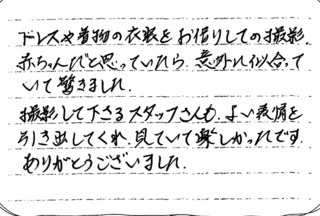 ドレスや着物の衣装をお借りしての撮影.
赤ちゃんだと思っていたら、意外に似合って
いて驚きました.
撮影して下さるスタッフさんも、よい表情を
引き出してくれ、見ていて楽しかったです.
ありがとうございました.